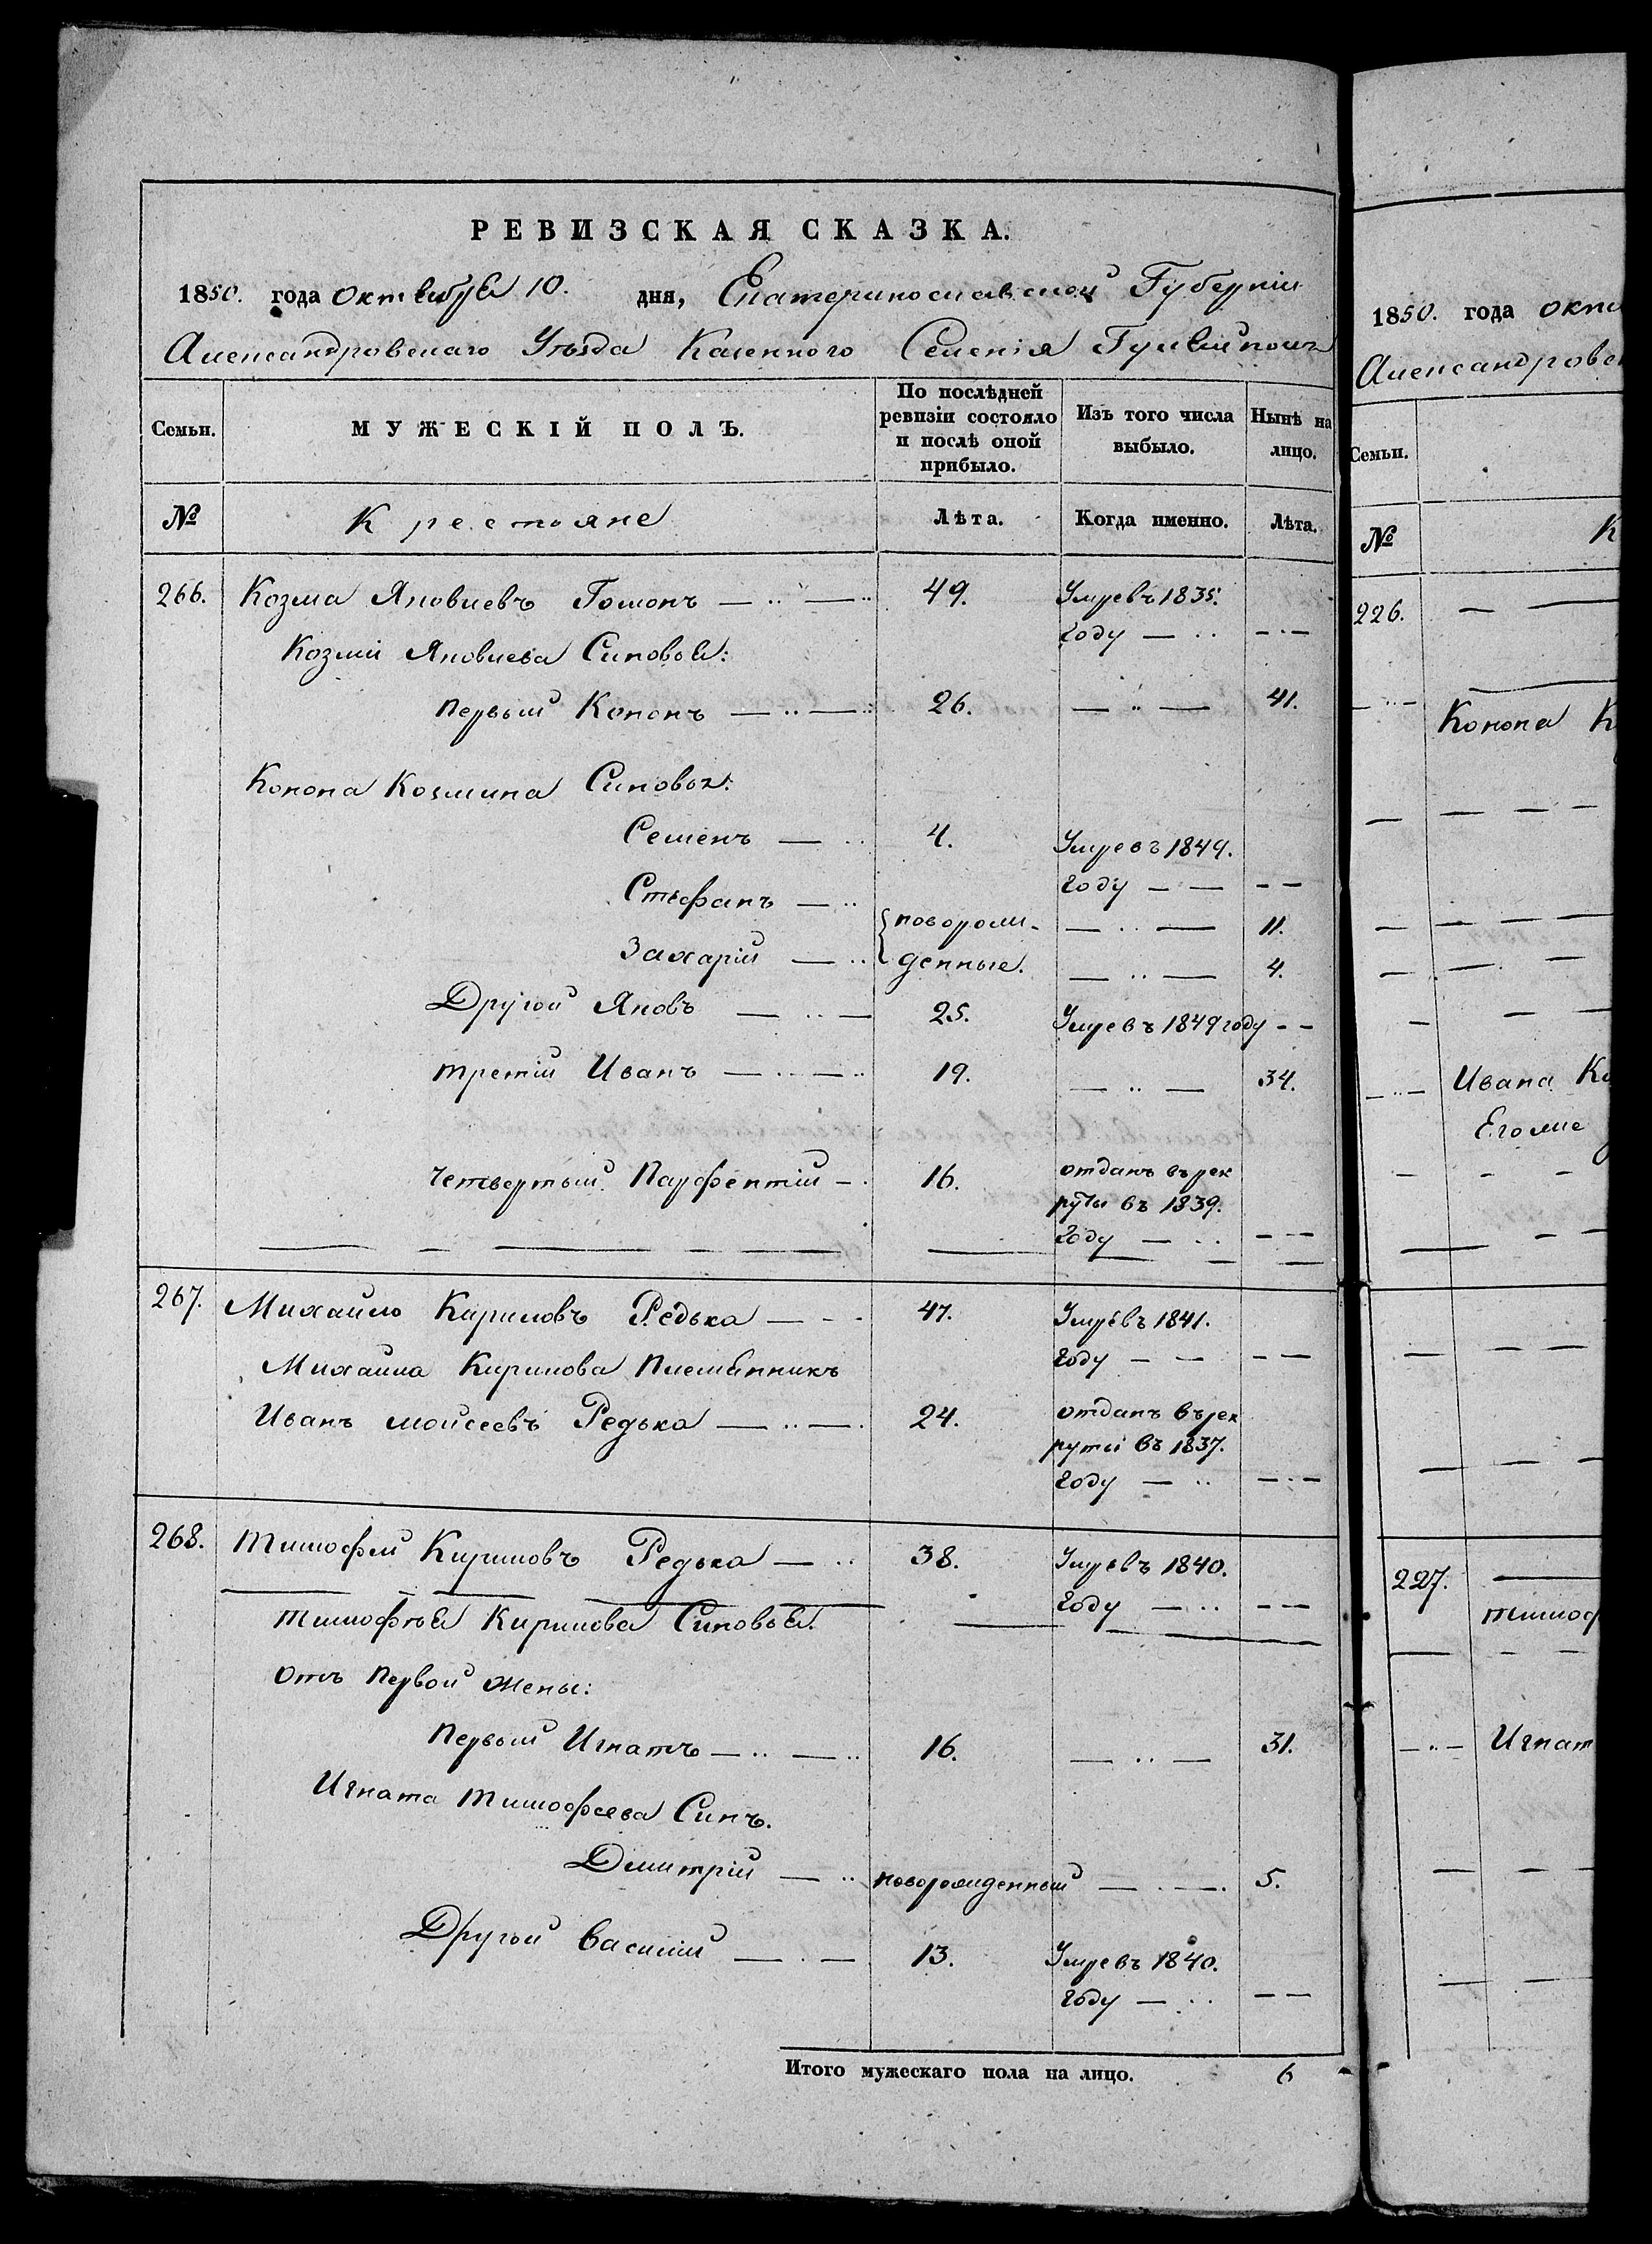 РЕВИЗСКАЯ СКАЗКА.
1850. года Октября 10. дня, Екатеринославской Губерніи
Александровскаго Уѣзда Казенного Селенія Гуляйполя
Семьи. МУЖЕСКІЙ ПОЛЪ. По послѣдней ревизіи состояло и послѣ оной прибыло. Изъ того числа выбыло. Нынѣ на лицо.
№ Крестьяне Лѣта. Когда именно. Лѣта.
266. Козма Яковлевъ Гомонъ — „ — 49. Умре въ 1835.
году — — —
Козмы Яковлева Сыновья:
Первый Кононъ — „ — 26. — „ — 41.
Конона Козмина Сыновья:
Семенъ — 4. Умре въ 1849.
году — — — —
Стефанъ — новорож- — „ — 11.
Захарій — денные. — „ — 4.
Другой Яковъ — „ — 25. Умре въ 1849 году — —
третій Иванъ — „ — 19. — „ — 34.
Четвертый Парфентій — 16. отданъ въ рек
руты въ 1839.
году — — —
267. Михайло Кириловъ Редька — — 47. Умре въ 1841.
году — — — —
Михайла Кирилова Племянникъ
Иванъ Моисеевъ Редька — „ — 24. отданъ въ рек
руты въ 1837.
году — — —
268. Тимофей Кириловъ Редька — 38. Умре въ 1840.
году — — —
Тимофѣя Кирилова Сыновья:
Отъ Первой жены:
Первый Игнатъ — „ — 16. — „ — 31.
Игната Тимофеева Сынъ.
Дмитрій — новорожденный — — 5.
Другой Василій — — 13. Умре въ 1840.
году — — —
Итого мужескаго пола на лицо. 6
1850. года Октя
Александровск
Семьи.
№ К
226. —
Конона К
Ивана Ко
Его же
227. —
Тимоф
Игнат